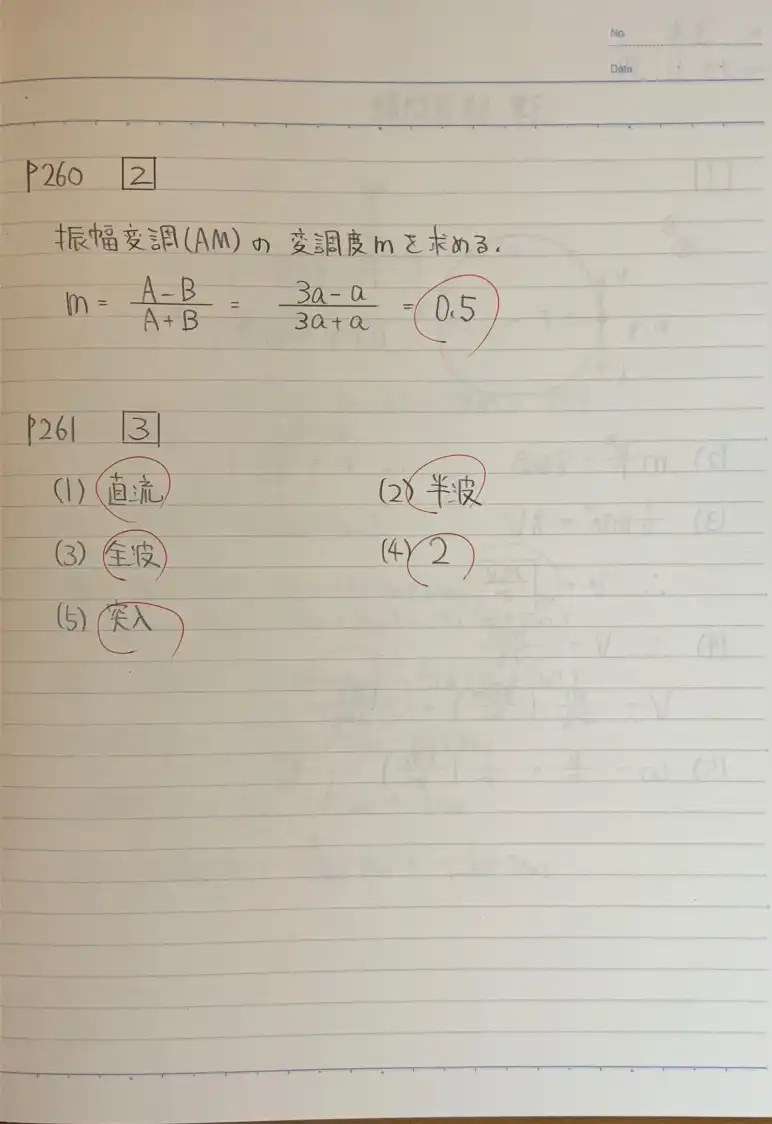 No.
Date
P260 2
振幅変調(AM)の 変調度mを求める.
m = A-B/A+B = 3a-a/3a+a = 0.5
P261 3
(1) 直流 (2) 半波
(3) 全波 (4) 2
(5) 突入